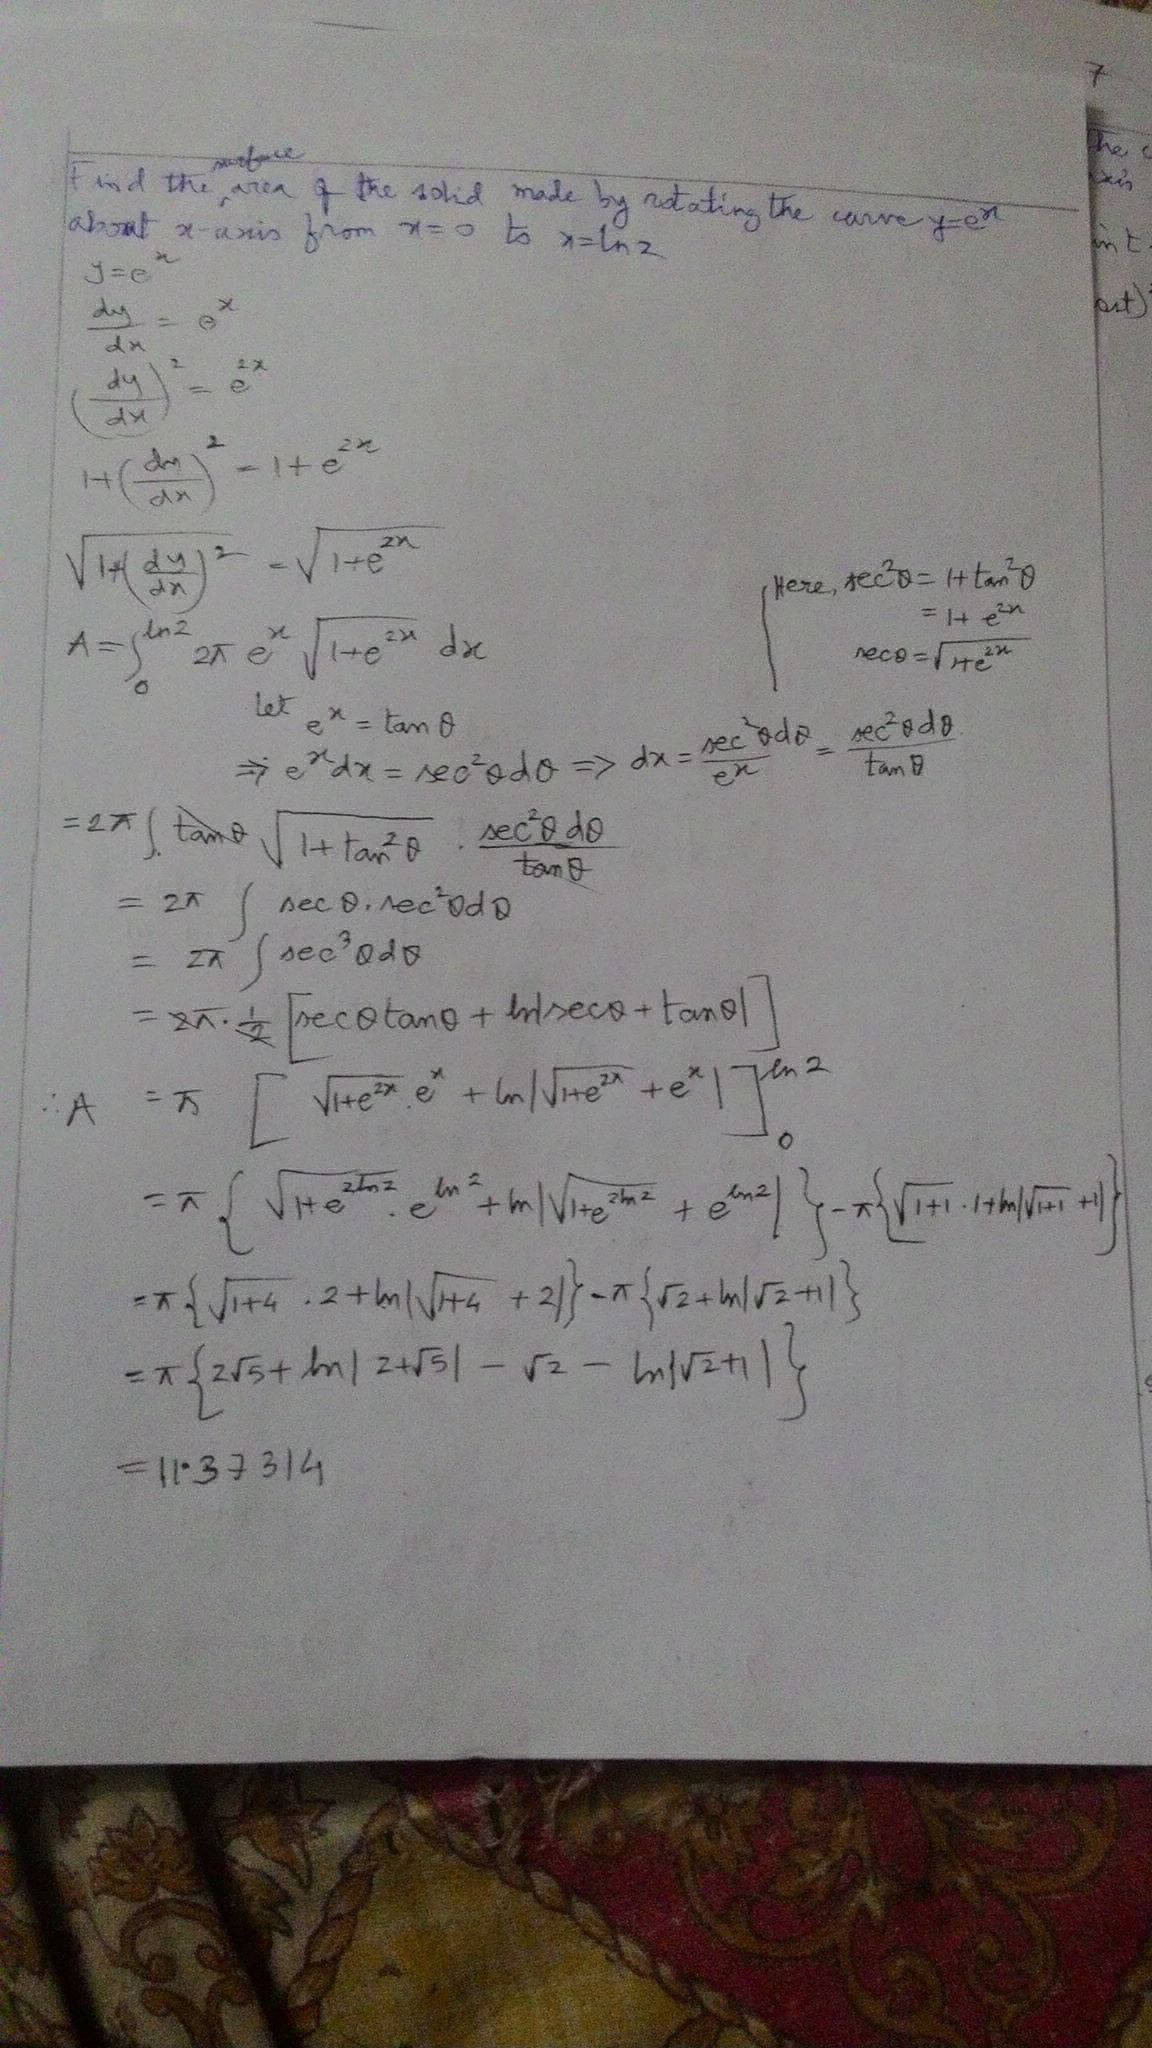 Find the surface area of the solid made by rotating the curve y=e^x
about x-axis from x=0 to x=ln2
y=e^x
dy/dx = e^x
(dy/dx)^2 = e^2x
1+(dy/dx)^2 = 1+e^2x
√(1+(dy/dx)^2) = √(1+e^2x)
Here, sec^2θ = 1+tan^2θ
= 1+e^2x
secθ = √(1+e^2x)
A = ∫_0^ln2 2π e^x √(1+e^2x) dx
let e^x = tanθ
⇒ e^x dx = sec^2θdθ ⇒ dx = sec^2θdθ/e^x = sec^2θdθ/tanθ
= 2π ∫ tanθ √(1+tan^2θ) . sec^2θdθ/tanθ
= 2π ∫ secθ.sec^2θdθ
= 2π ∫ sec^3θdθ
= 2π. 1/2 [secθtanθ + ln|secθ+tanθ|]
∴ A = π [√(1+e^2x).e^x + ln|√(1+e^2x) + e^x|]_0^ln2
= π {√(1+e^2ln2).e^ln2 + ln|√(1+e^2ln2) + e^ln2|} - π{√(1+1).1+ln|√(1+1)+1|}
= π {√(1+4) .2+ln|√(1+4) +2|} - π {√2+ln|√2+1|}
= π {2√5+ ln|2+√5| - √2 - ln|√2+1|}
= 11.37314
7
The
axis
int